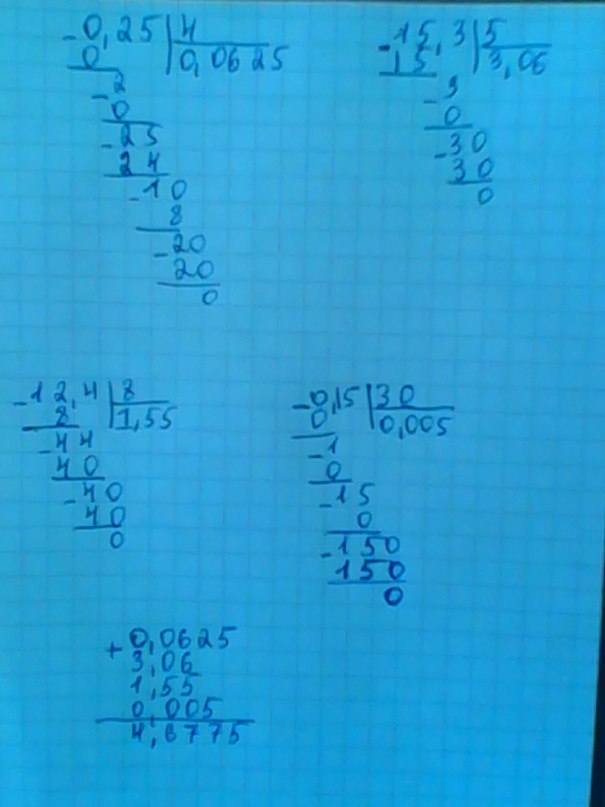 -0,25 | 4
0 | 0,0625
-2
0
-25
24
-10
8
-20
20
0
-15,3 | 5
15 | 3,06
-3
0
-30
30
0
-12,4 | 8
8 | 1,55
-44
40
-40
40
0
-0,15 | 30
0 | 0,005
-1
0
-15
0
-150
150
0
+0,0625
3,06
1,55
0,005
4,6775